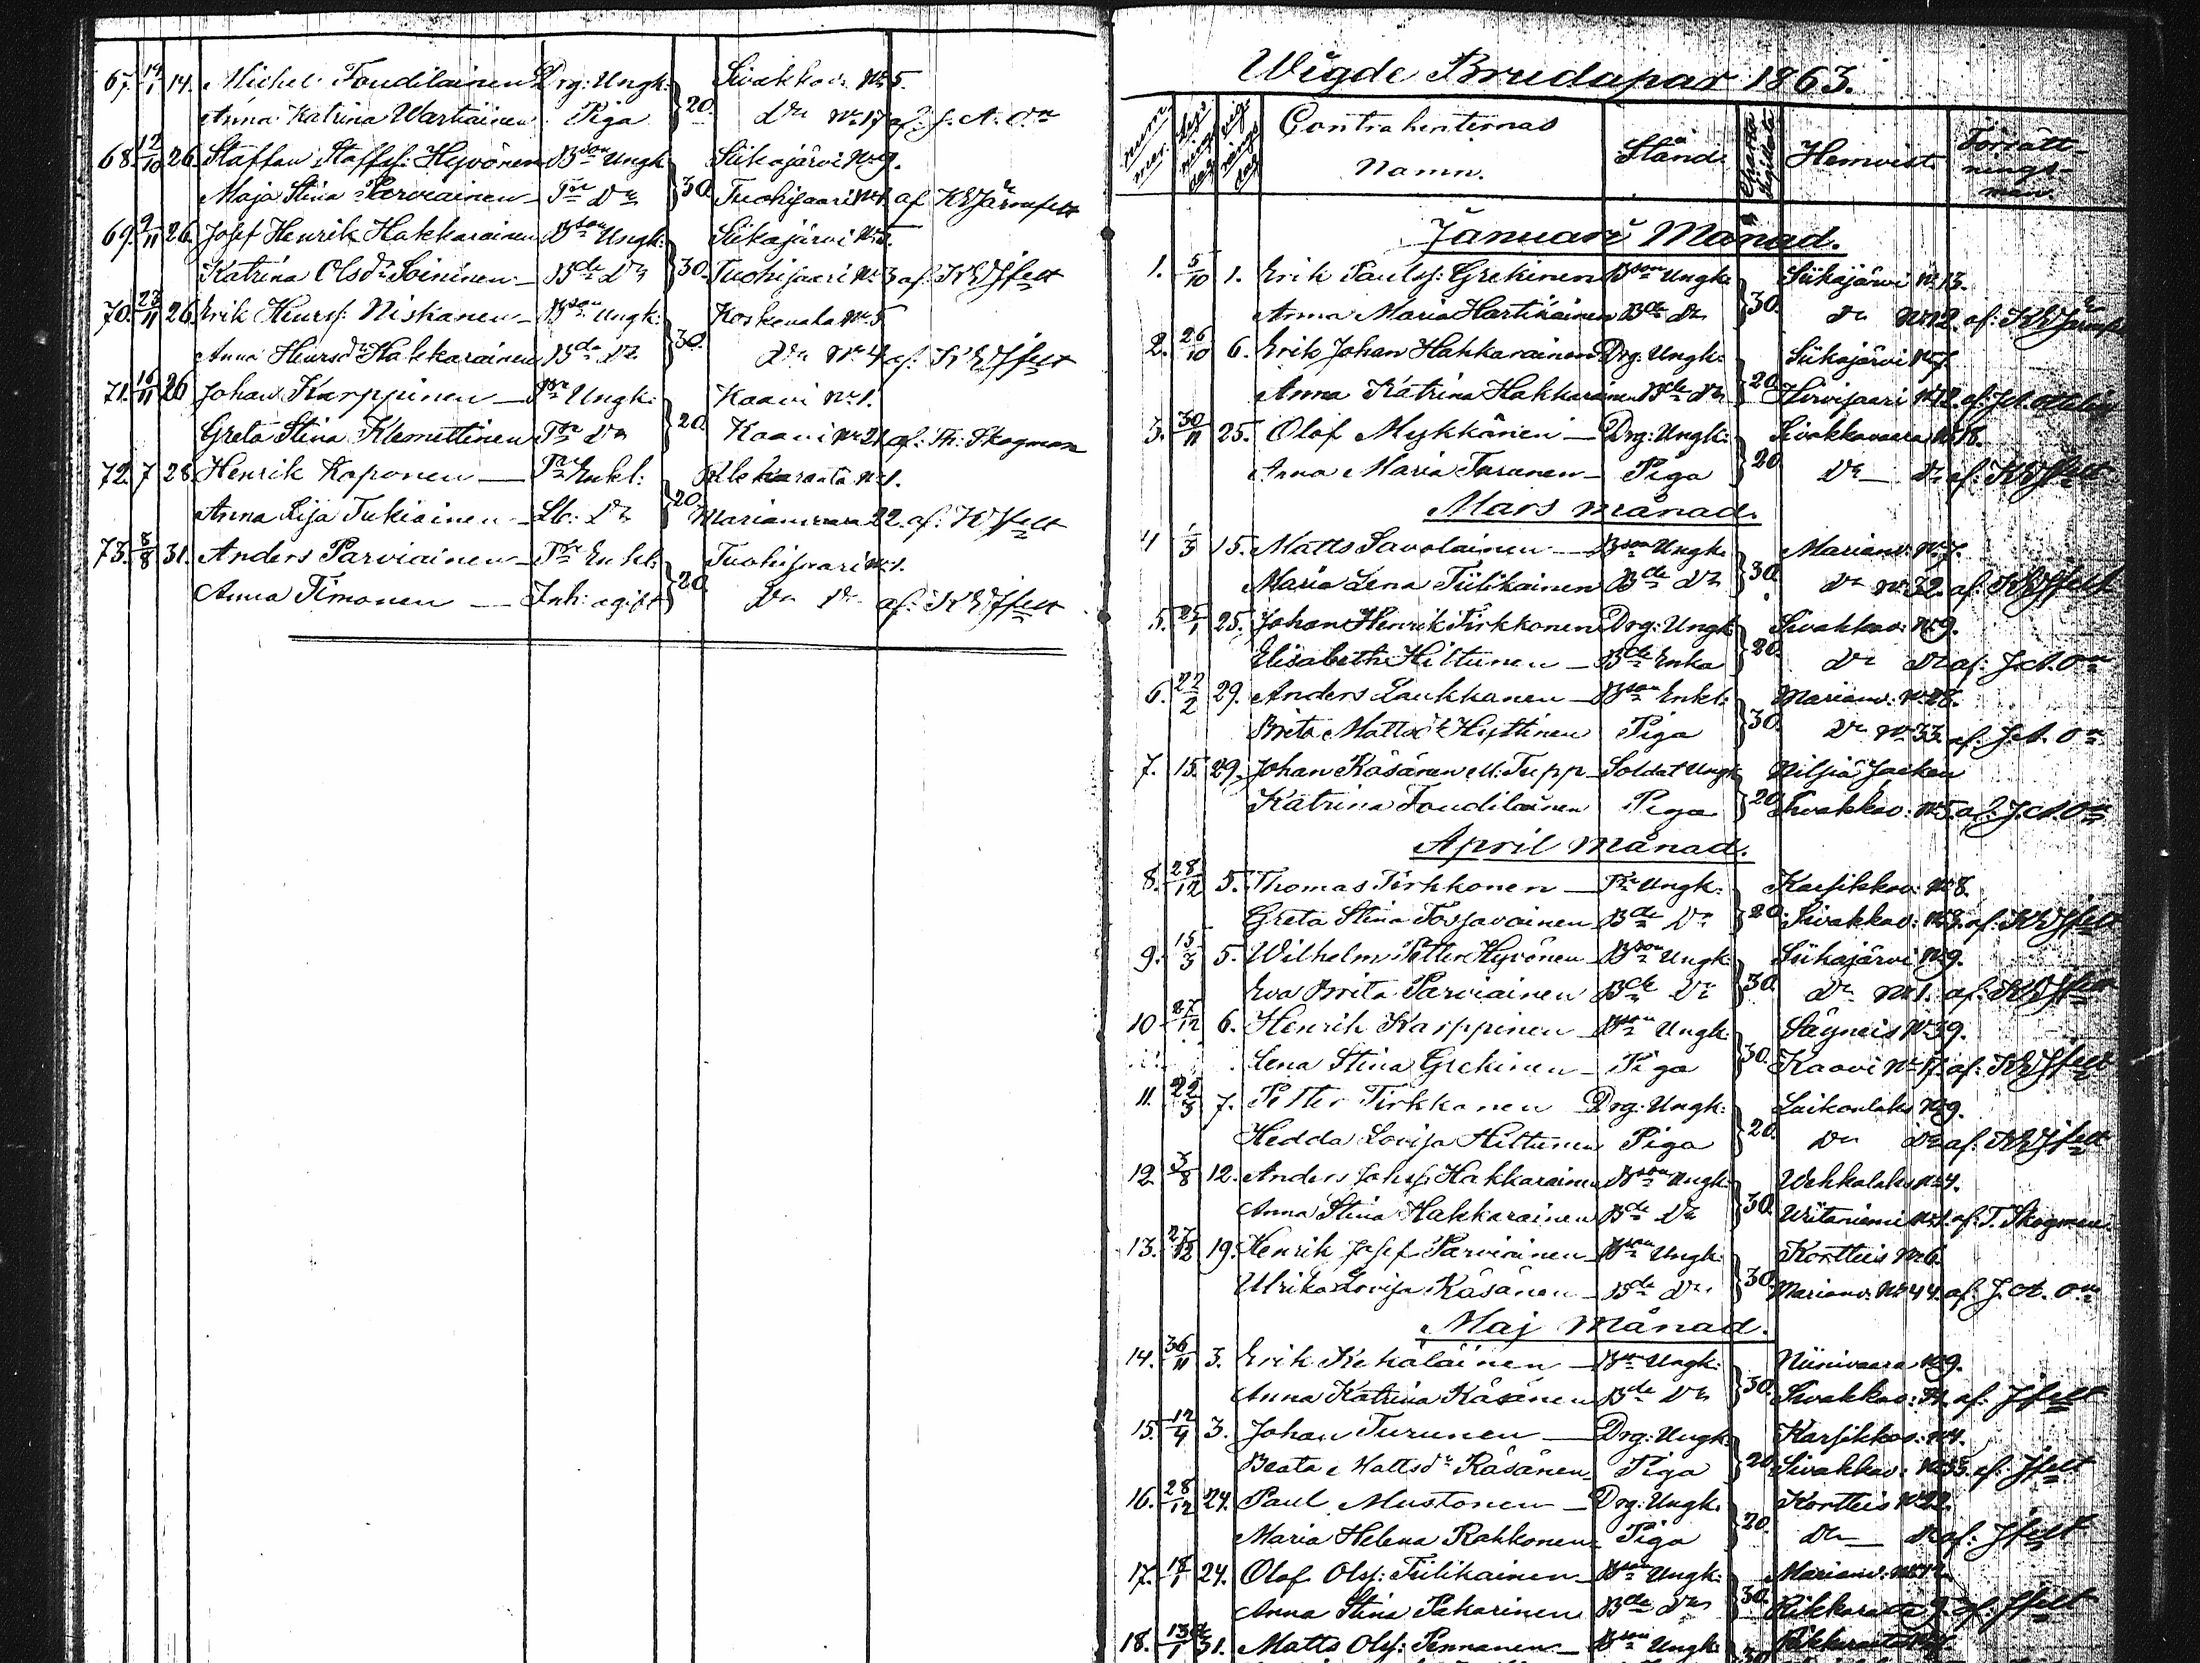 67. 19/1 14. Michel Toudilainen Drg: Ungk: Sivakkav. No 5.
Anna Katrina Wartiainen Piga 20. Do No 17 af J. A. On
68. 12/10 26. Staffan Staffs: Hyvönen Bson Ungk Siikajärvi No 9.
Maja Stina Parviainen Tr Do 30. Tuohijaari No 1 af KEJärnefelt
69. 9/11 26. Josef Henrik Hakkarainen Bson Ungk: Siikajärvi No 2.
Katrina Olsdr Soininen Bde Do 30. Tuohijaari No 3 af: KEJfelt
70. 23/11 26. Erik Henrss: Niskanen Bson Ungk: Koskenala No 5
Anna Henrsdr Hakkarainen Bde Do 30. Do No 4 af: KEJfelt
71. 16/11 26 Johan Karppinen Tr Ungk: Kaavi No 1.
Greta Stina Klemettinen Tr Do 20. Kaavi No 21 af: Th: Skogman
72. 7 28 Henrik Koponen Tr Enkl: No 1.
Anna Lisa Tukiainen Lb: Do 20. Marianvaara 22. af: KEJfelt
73. 8/8 31. Anders Parviainen Tr Enkl: Tuohijaari No 1.
Anna Timonen Inh: ogift 20. Do Do af: KEJfelt
Wigde Brudapar 1863.
Nummer. Lysnings dag vignings dag Contrahenternas Namn. Stånd. Charta Sigillata Hemvist. Författningsmän.
Januari Månad.
1. 5/10 1. Erik Paulss: Grekinen Bson Ungk: Siikajärvi No 13.
Anna Maria Hartikainen Bde Do 30. Do No 12. af: KEJärnefe
2. 26/10 6. Erik Johan Hakkarainen Drg: Ungk: Siikajärvi No 7.
Anna Katrina Hakkarainen Bde Do 20. Hirvijaari No 12. af: J.A.
3. 30/11 25. Olof Mykkänen Drg: Ungk: Sivakkavaara No 18.
Anna Maria Turunen Piga 20 Do Do af: KEJfelt
Mars månad.
4 1/3 15. Matts Savolainen Bson Ungk. Marianv: No 7.
Maria Lena Tiilikainen Bde Do 30. Do No 32. af: KEJfelt
5. 25/1 25. Johan Henrik Pirkkonen Drg: Ungk: Sivakkav: No 9.
Elisabeth Hiltunen Bde Enka 20. Do Do af: J.A.On
6. 22/2 29. Anders Laukkanen Bson Enkl: Marianv: No 28.
Brita Mattsdr Hyttinen Piga 30. Do No 33. af: J.A. On
7. 15. 29. Johan Räsänen M: Tupp Soldat Ungk Nilsiä Socken
Katrina Toudilainen Piga 20 Sivakkav: No 5. af: J.A.On
April månad.
8. 28/12 5. Thomas Pirkkonen Tr Ungk: Karsikkov: No 8.
Greta Stina Tossavainen Bde Do 20. Sivakkav: No 3. af: KEJfelt
9. 15/3 5. Wilhelm Petter Hyvönen Bson Ungk Siikajärvi No 9.
Eva Brita Parviainen Bde Do 30. Do No 1. af: KEJfelt
10 27/12 6. Henrik Karppinen Bson Ungk: Säyneis No 39.
Lena Stina Grekinen Piga 30. Kaavi No 17. af: KEJfelt
11. 22/3 7. Petter Pirkkonen Drg: Ungk: Luikonlaks No 9.
Hedda Lovisa Hiltunen Piga 20. Do Do af: KEJfelt
12 3/8 12. Anders Johss: Hakkarainen Bson Ungk: Wehkalaks No 4.
Anna Stina Hakkarainen Bde Do 30. Wiitaniemi No 1. af: T. Skogman
13. 27/12 19. Henrik Josef Parviainen Bson Ungk: Kortteis No 6.
Ulrika Lovisa Räsänen Bde Do 30. Marianv: No 44. af: J. A. On
Maj månad.
14. 36/11 3. Erik Kekäläinen Bson Ungk: Niinivaara No 9.
Anna Katrina Räsänen Bde Do 30. Sivakkav: af: Jfelt
15. 12/4 3. Johan Turunen Drg: Ungk: Karsikkov: No 4.
Beata Mattsdr Räsänen Piga 20 Sivakkav: No 33. af: Jfelt
16. 28/12 24. Paul Mustonen Drg: Ungk. Kortteis No 22.
Maria Helena Rakkonen Piga 20. Do Do af: Jfelt
17. 18/1 24. Olof Olss: Tiilikainen Bson Ungk: Marianv: No 12.
Anna Stina Pakarinen Bde Do 30. Rikkaranta 9. af: Jfelt
18. 13/1 31. Matts Olss: Pennanen Bson Ungk: Rikkaranta